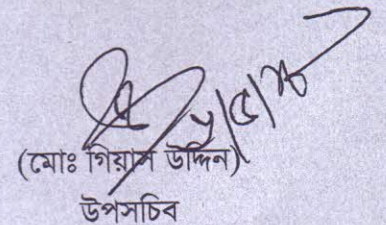 (মোঃ গিয়াস উদ্দিন)
উপসচিব